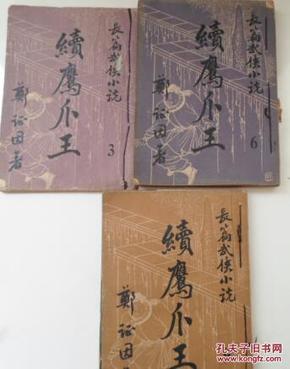 長篇武俠小說
續鷹爪王
3
鄭証因著
長篇武俠小說
續鷹爪王
6
鄭証因著
長篇武俠小說
續鷹爪王
鄭証因
孔夫子旧书网